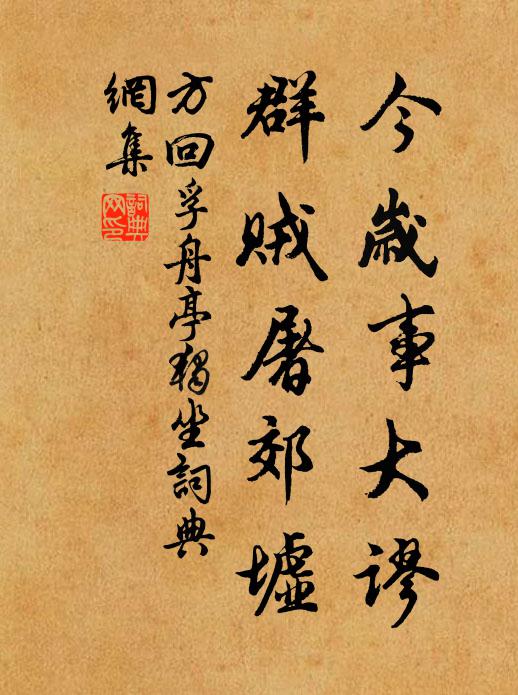 今歲事大謬
群賊屠郊墟
方回孚舟亭獨坐詞典
網集
詞典
网印